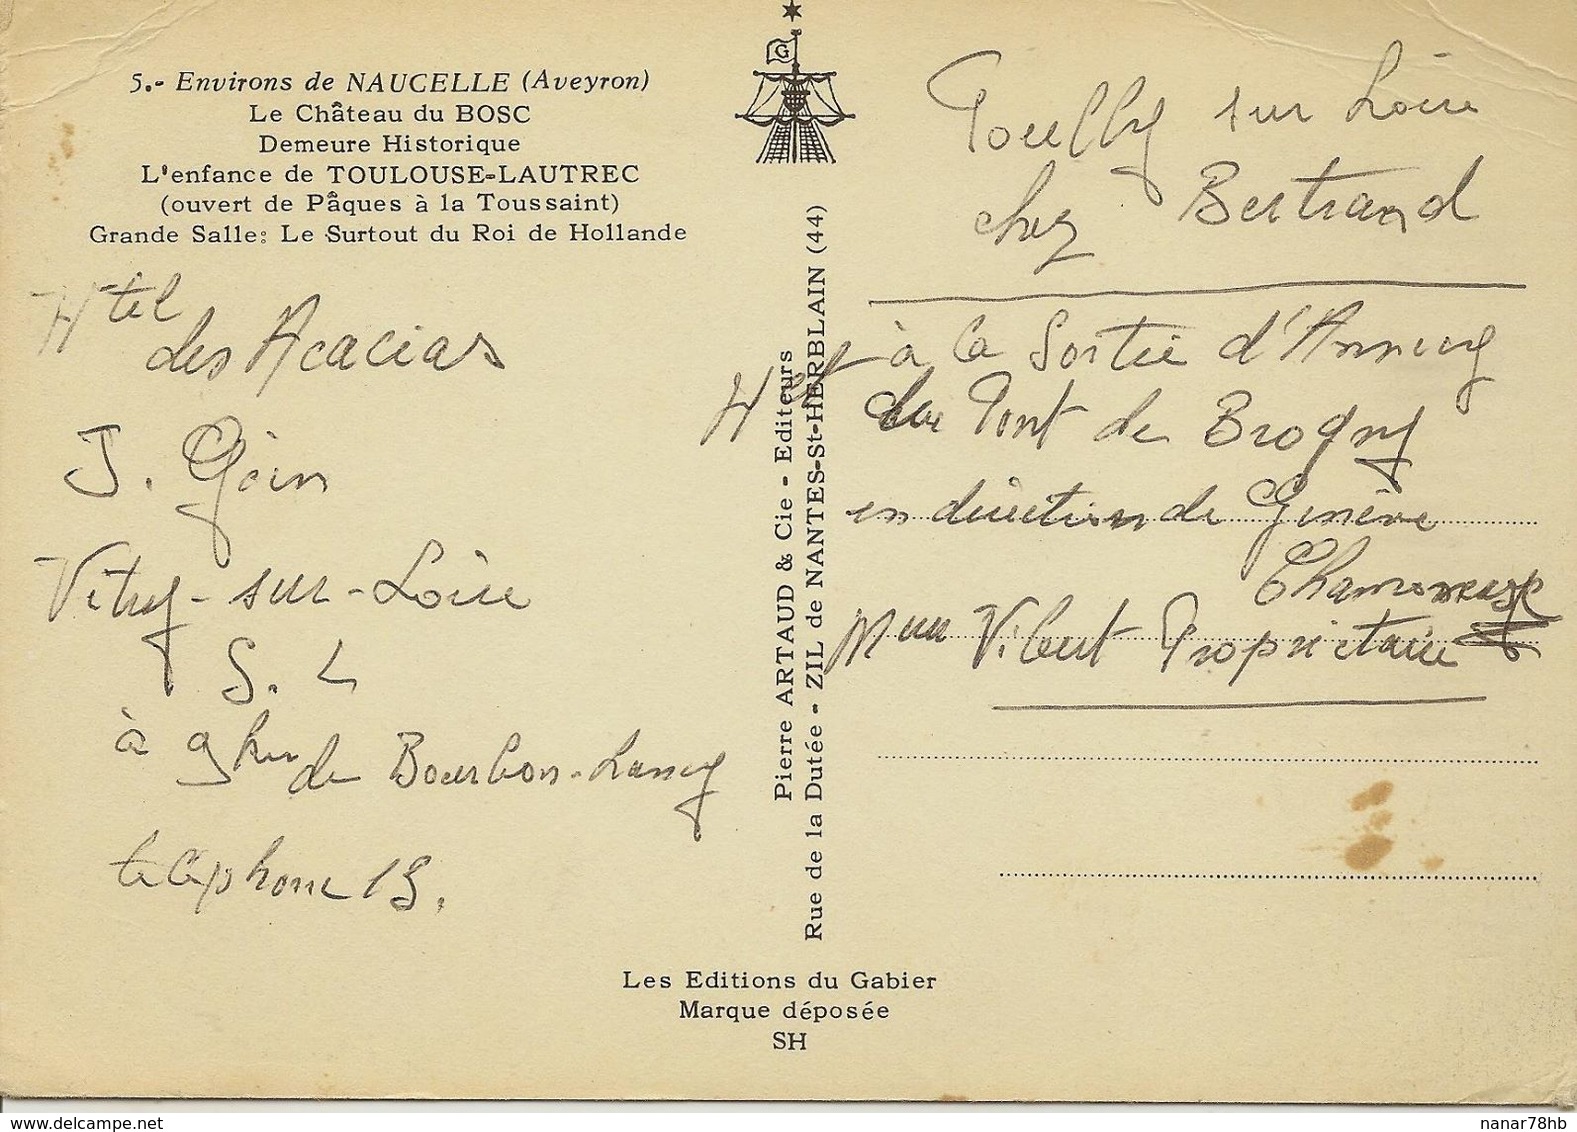 5.- Environs de NAUCELLE (Aveyron)
Le Château du BOSC
Demeure Historique
L'enfance de TOULOUSE-LAUTREC
(ouvert de Pâques à la Toussaint)
Grande Salle: Le Surtout du Roi de Hollande
Htel
des Acacias
J. Goin
Vitry-sur-Loire
S. L
à 9 km de Bourbon-Lancy
téléphone 15.
G
Pierre ARTAUD & Cie - Editeurs
Rue de la Dutée - ZIL de NANTES-St-HERBLAIN (44)
Pouilly sur Loire
chez Bertrand
Htel à la Sortie d'Annecy
Pont de Brogny
en direction de Genève
Vibert Propriétaire
Les Editions du Gabier
Marque déposée
SH
delcampe.net
nanar78hb